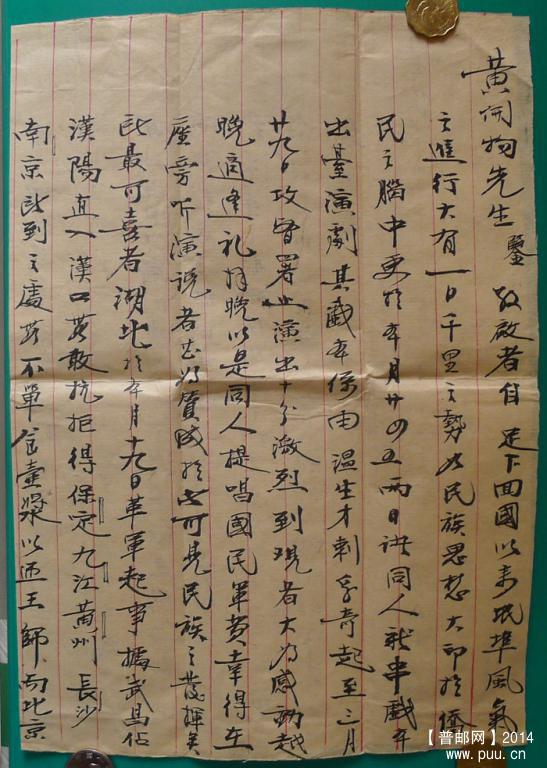 黄開物先生 鑒 敬啟者自 足下回國以来岷埠風氣
之進行大有一日千里之勢如民族思想大印於僑
民之腦中更於本月廿四五兩日同人新串戲
出臺演劇其戲本係由温生才刺孚奇起至三月
廿九日攻督署止演出十分激烈到观者大为感動越
晚適逢礼拜晚以是同人提唱國民軍費幸得在
座旁听演說者甚为贊成於此可見民族之發揮矣
此最可喜者湖北於本月十九日革軍起事據武昌佔
漢陽直入漢口莫敢抗拒得保定九江黄州長沙
南京所到之處莫不單食壺漿以迎王師而北京
【普邮网】2014
www.puu.cn